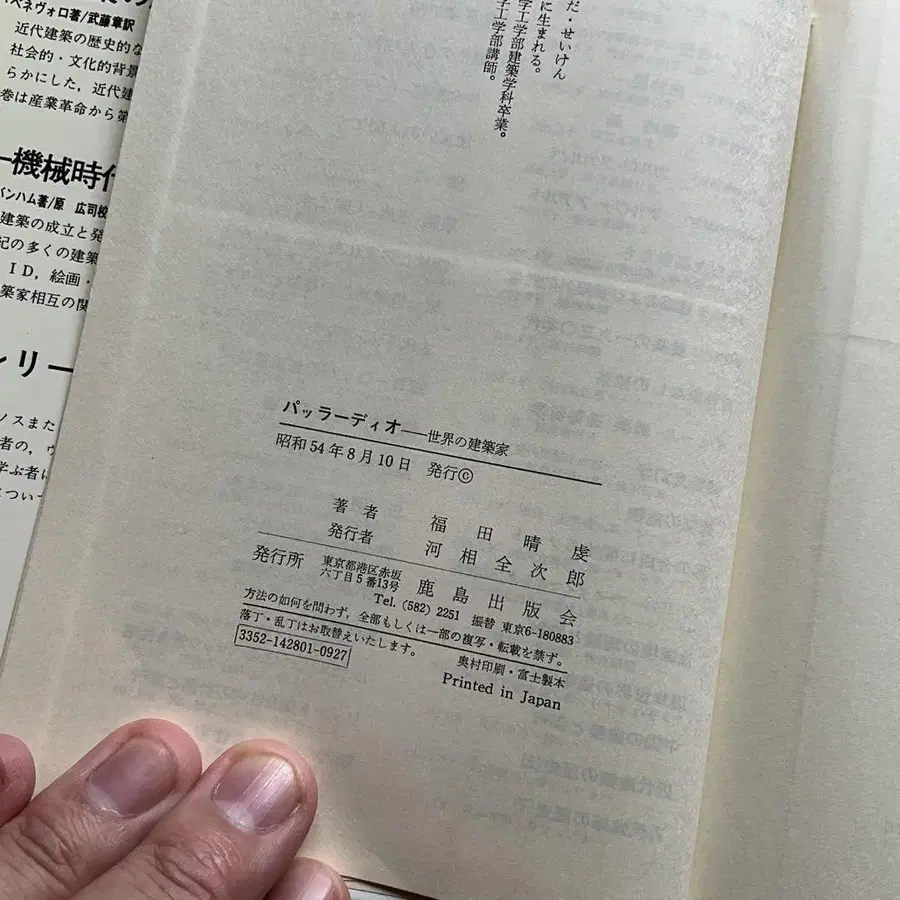 ベネヴォロ著/武藤章訳
近代建築の歴史的な
社会的・文化的背景
らかにした,近代建
巻は産業革命から第
機械時代
バンハム著/原 広司校
建築の成立と発
紀の多くの建築
ID,絵画・
築家相互の関
レリー
ノスまた
者の,ヴ
学ぶ者に
につい
だ・せいけん
に生まれる。
学工学部建築学科卒業。
学工学部講師。
パッラーディオ——世界の建築家
昭和54年8月10日 発行©
著者 福田晴虔
発行者 河相全次郎
発行所 東京都港区赤坂六丁目5番13号 鹿島出版会
Tel. (582) 2251 振替 東京6-180883
方法の如何を問わず,全部もしくは一部の複写・転載を禁ず。
落丁・乱丁はお取替えいたします。
3352-142801-0927
奥村印刷・富士製本
Printed in Japan